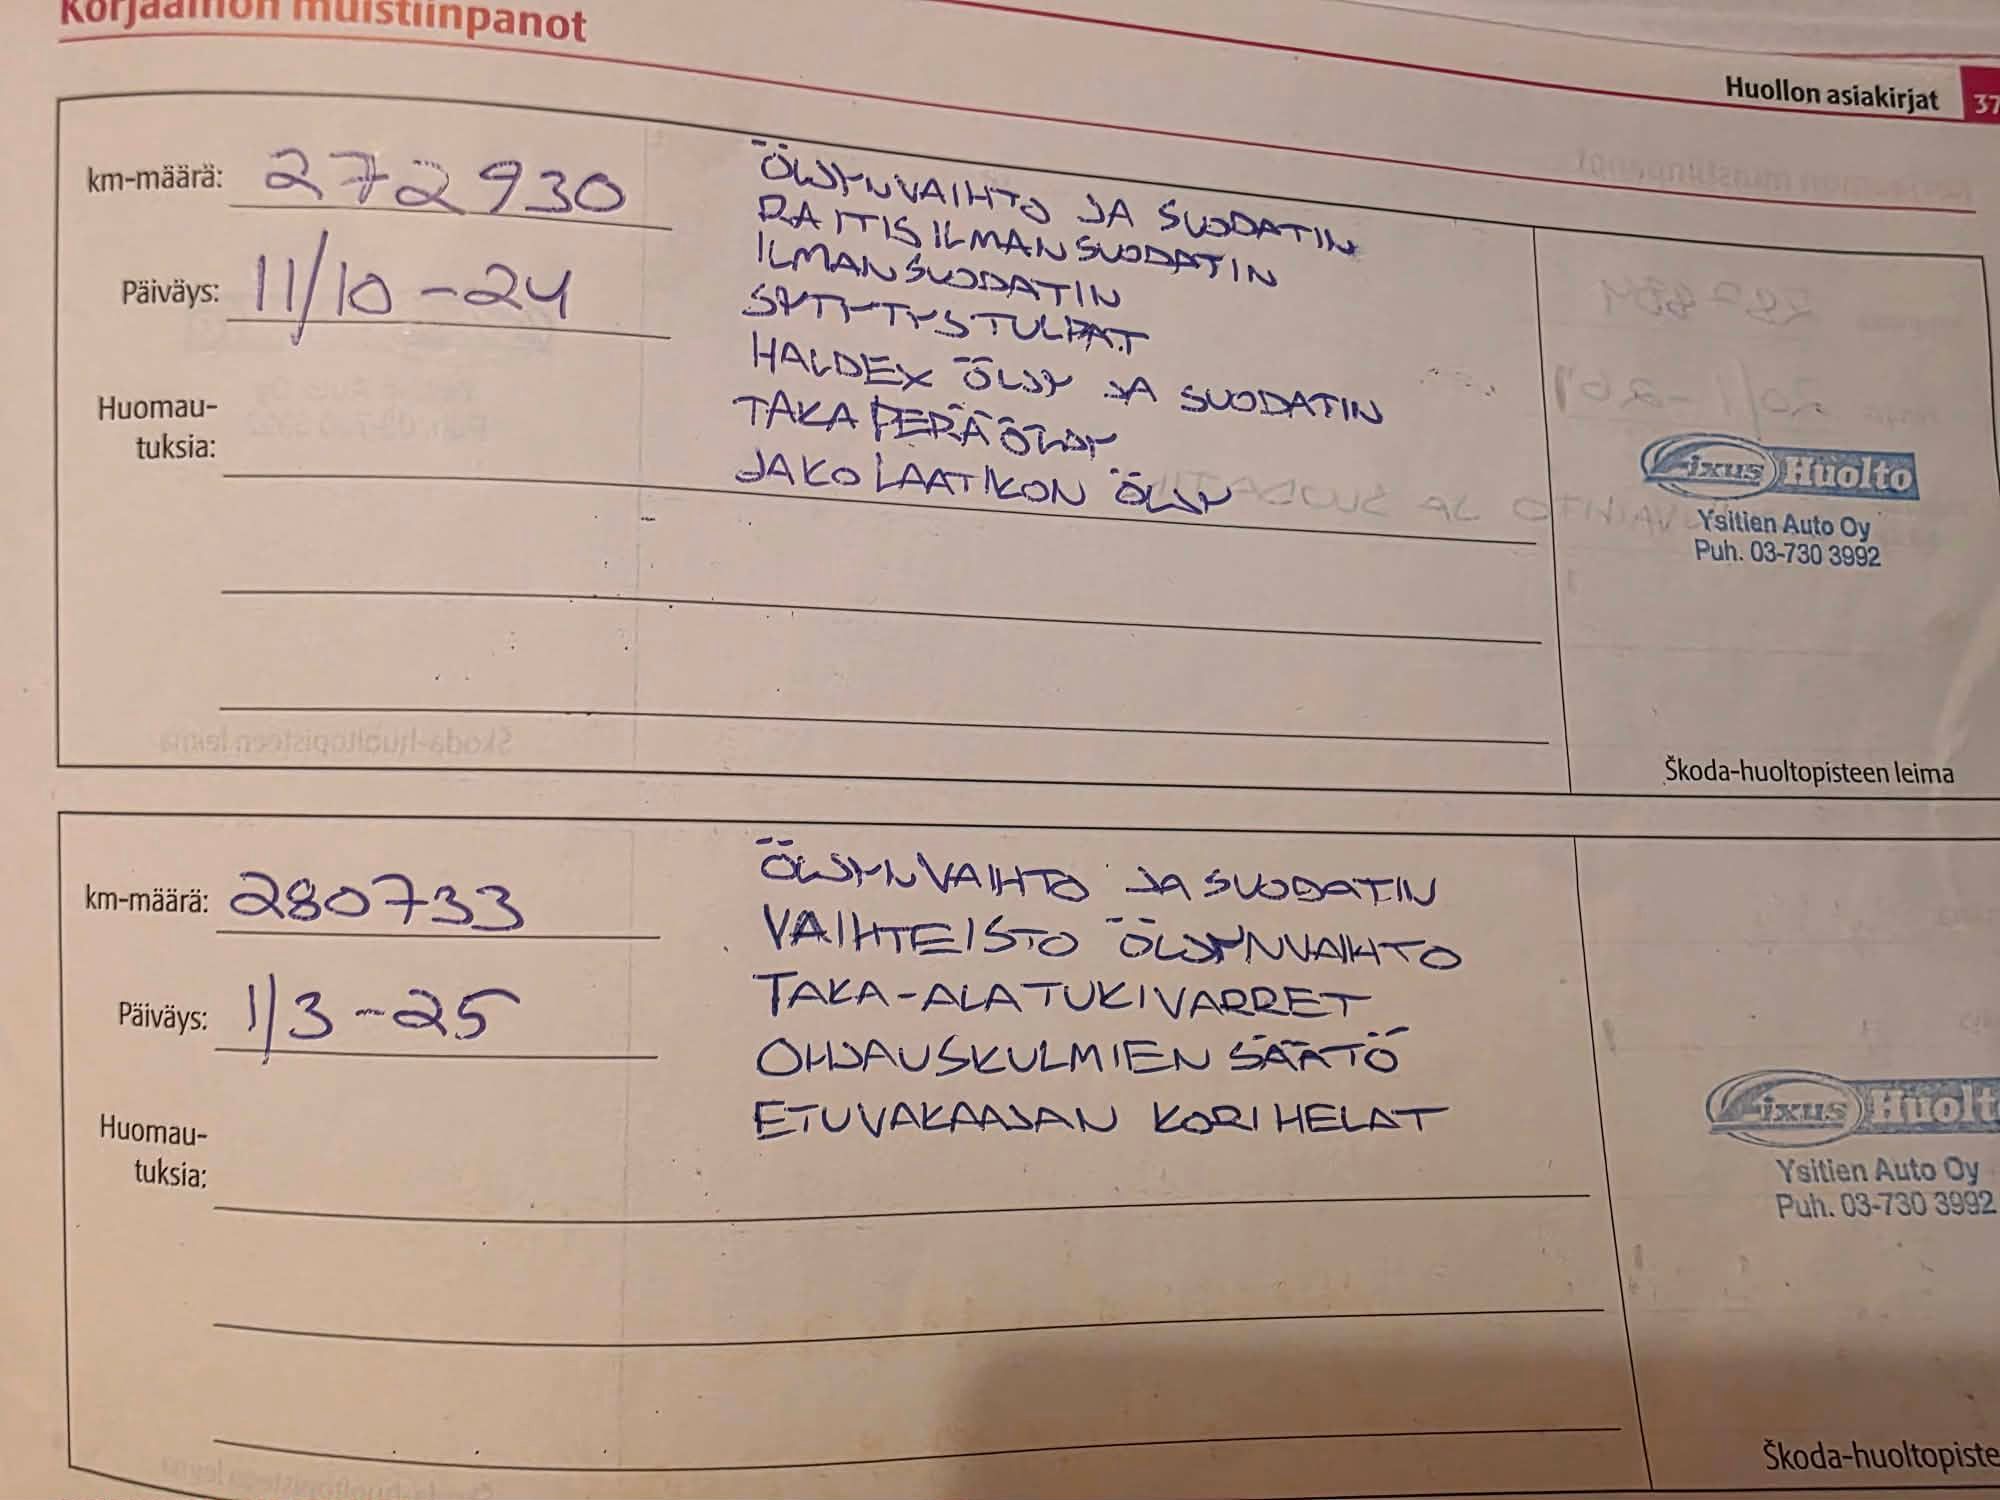 Korjaamon muistiinpanot
Huollon asiakirjat 37
km-määrä: 272930
Päiväys: 11/10-24
Huomau-
tuksia:
ÖLJYNVAIHTO JA SUODATIN
RAITISILMANSUODATIN
ILMANSUODATIN
SYTYTYSTULPAT
HALDEX ÖLJY JA SUODATIN
TAKAPERÄÖLJY
JAKOLAATIKON ÖLJY
Fixus Huolto
Ysitien Auto Oy
Puh. 03-730 3992
Škoda-huoltopisteen leima
km-määrä: 280733
Päiväys: 1/3-25
Huomau-
tuksia:
ÖLJYNVAIHTO JA SUODATIN
VAIHTEISTO ÖLJYNVAIHTO
TAKA-ALATUKIVARRET
OHJAUSKULMIEN SÄÄTÖ
ETUVAKAAJAN KORIHELAT
Fixus Huolt
Ysitien Auto Oy
Puh. 03-730 3992
Škoda-huoltopiste